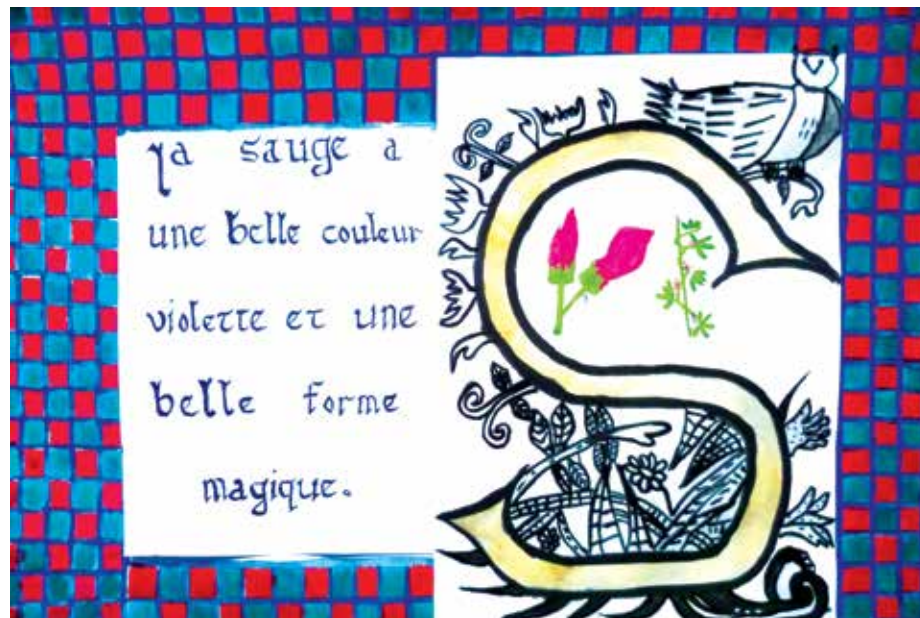 la sauge a
une belle couleur
violette et une
belle forme
magique.
S